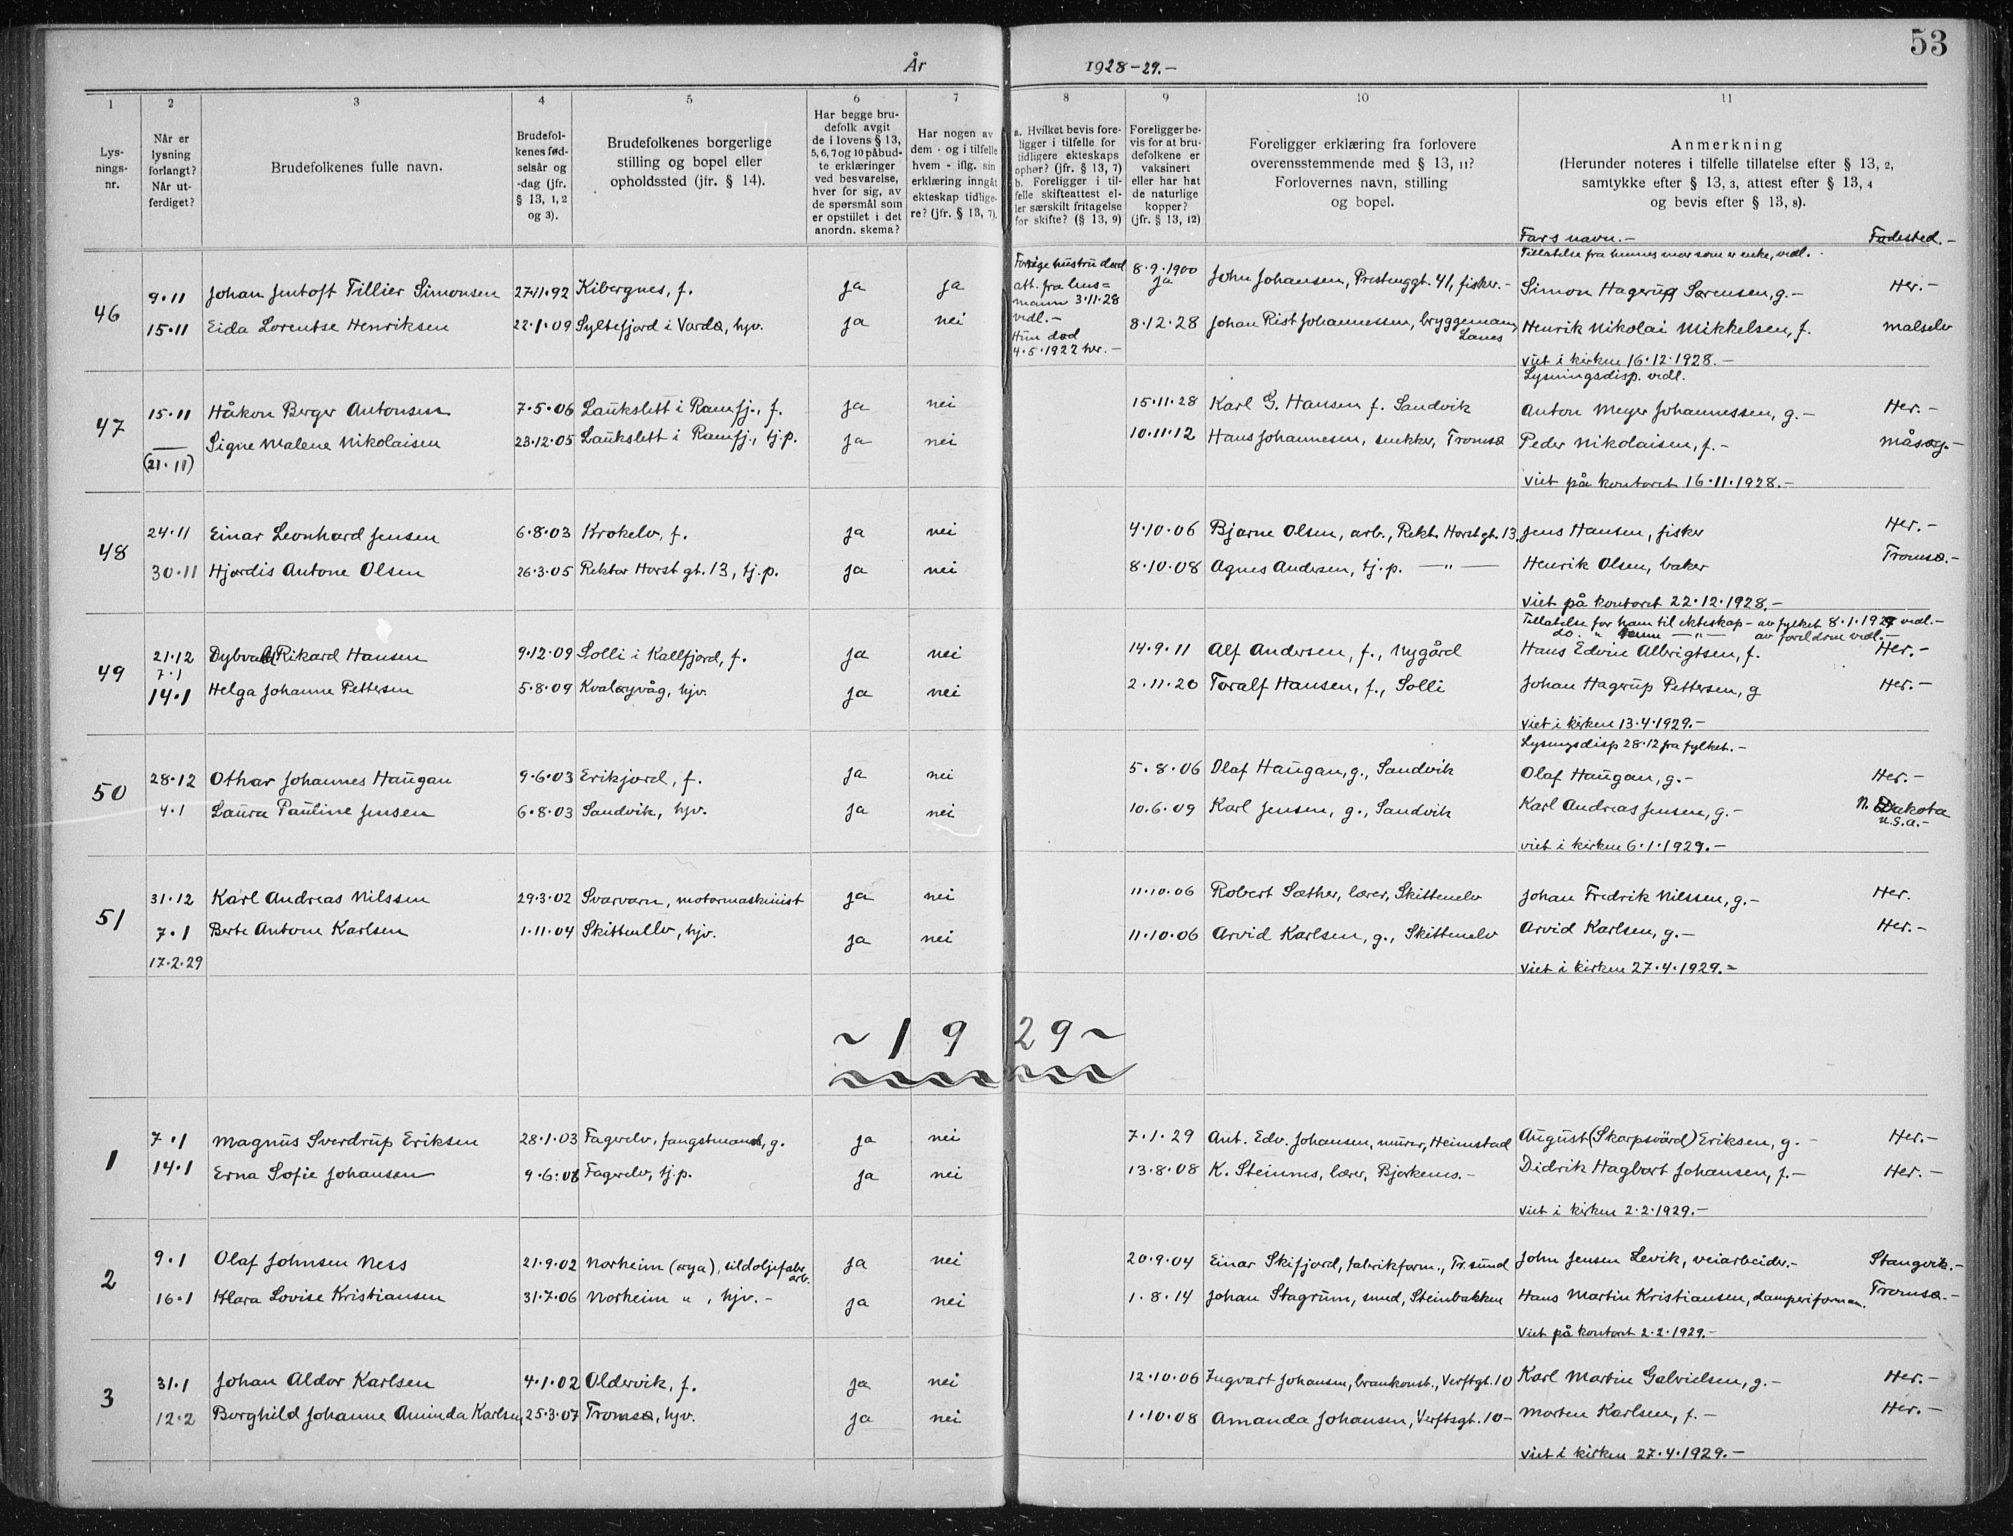 53
År 1928-29.-
1 2 3 4 5 6 7 8 9 10 11
Lys-
nings-
nr.
Når er
lysning
forlangt?
Når ut-
ferdiget?
Brudefolkenes fulle navn.
Brudefol-
kenes fød-
selsår og
-dag (jfr.
§ 13, 1, 2
og 3).
Brudefolkenes borgerlige
stilling og bopel eller
opholdssted (jfr. § 14).
Har begge bru-
defolk avgit
de i lovens § 13,
5, 6, 7 og 10 påbud-
te erklæringer
ved besvarelse,
hver for sig, av
de spørsmål som
er opstillet i det
anordn. skema?
Har nogen av
dem - og i tilfelle
hvem - iflg. sin
erklæring inngåt
ekteskap tidlige-
re? (jfr. § 13, 7).
a. Hvilket bevis fore-
ligger i tilfelle for
tidligere ekteskaps
ophør? (jfr. § 13, 7)
b. Foreligger i til-
felle skifteattest el-
ler særskilt fritagelse
for skifte? (§ 13, 9)
Foreligger be-
vis for at bru-
defolkene er
vaksinert
eller har hat
de naturlige
kopper?
(jfr. § 13, 12)
Foreligger erklæring fra forlovere
overensstemmende med § 13, 11?
Forlovernes navn, stilling
og bopel.
Anmerkning
(Herunder noteres i tilfelle tillatelse efter § 13, 2,
samtykke efter § 13, 3, attest efter § 13, 4
og bevis efter § 13, 8).
Fars navn.- Fødested.-
Tillatelse fra hennes mor som er enke, vedl.
46 9.11 Johan Jentoft Tillier Simonsen 27.11.92 Kibergnes, f. ja ja 8.9.1900 ja John Johansen, Prestenggt. 41, fisker.- Simon Hagerup Sørensen, g.- Her.-
Forrige hustru død
att. fra lens=
mann 3.11.28
vedl.-
Hun død
4.5.1922 her.-
15.11 Eida Lorentse Henriksen 22.1.09 Syltefjord i Vardø, hjv. ja nei 8.12.28 Johan Rist Johannessen, bryggemann, Lanes Henrik Nikolai Mikkelsen, f. Målselv
Viet i kirken 16.12.1928.-
Lysningsdisp. vedl.
47 15.11 Håkon Berger Antonsen 7.5.06 Laukslett i Ramfj., f. ja nei 15.11.28 Karl G. Hansen f. Sandvik Anton Meyer Johannessen, g.- Her.-
(21.11) Signe Malene Nikolaisen 23.12.05 Laukslett i Ramfj., tj.p. ja nei 10.11.12 Hans Johannesen, snekker, Tromsø Peder Nikolaisen, f.- Måsøy.-
Viet på kontoret 16.11.1928.-
48 24.11 Einar Leonhard Jensen 6.8.03 Krokelv, f. ja nei 4.10.06 Bjarne Olsen, arb., Rekt. Horst gt. 13. Jens Hansen, fisker Her.-
30.11 Hjørdis Antone Olsen 26.3.05 Rektor Horst gt. 13, tj.p. ja nei 8.10.08 Agnes Andersen, tj.p. —"— Henrik Olsen, baker Tromsø.-
Viet på kontoret 22.12.1928.-
Tillatelse for ham til ekteskap - av fylket 8.1.1929 vedl.-
do. " henne —"— av foreldrene vedl.-
49 21.12 Dybvald Rikard Hansen 9.12.09 Solli i Kallfjord, f. ja nei 14.9.11 Alf Andersen, f., Nygård Hans Edvin Albrigtsen, f. Her.-
7.1
14.1 Helga Johanne Pettersen 5.8.09 Kvaløyvåg, hjv. ja nei 2.11.20 Toralf Hansen, f., Solli Johan Hagerup Pettersen, g Her.-
Viet i kirken 13.4.1929.-
Lysningsdisp 28.12 fra fylket.-
50 28.12 Othar Johannes Haugan 9.6.03 Erikjord, f. ja nei 5.8.06 Olaf Haugan, g., Sandvik Olaf Haugan, g.- Her.-
4.1 Laura Pauline Jensen 6.8.03 Sandvik, hjv. ja nei 10.6.09 Karl Jensen, g., Sandvik Karl Andreas Jensen, g.- N. Dakota
U.S.A.-
viet i kirken 6.1.1929.-
51 31.12 Karl Andreas Nilssen 29.3.02 Svarvarn, motormaskinist ja nei 11.10.06 Robert Sæther, lærer, Skittenelv Johan Fredrik Nilssen, g.- Her.
7.1 Berte Antone Karlsen 1.11.04 Skittenelv, hjv. ja nei 11.10.06 Arvid Karlsen, g., Skittenelv Arvid Karlsen, g.- Her.-
17.2.29 Viet i kirken 27.4.1929.=
~ 1 9 29 ~
1 7.1 Magnus Sverdrup Eriksen 28.1.03 Fagerelv, fangstmand, g. ja nei 7.1.29 Ant. Edv. Johansen, murer, Heimstad August (Skarpsvärd) Eriksen, g. - Her.-
14.1 Erna Sofie Johansen 9.6.08 Fagerelv, tj.p. ja nei 13.8.08 K. Steinnes, lærer, Bjerkenes.- Didrik Hagbart Johansen, f.- Her.-
Viet i kirken 2.2.1929.-
2 9.1 Olaf Johnsen Ness 21.9.02 Norheim (Krya), sildoljefabr. arb. ja nei 20.9.04 Einar Skifjord, fabrikform., Tr.sund John Jensen Levik, veiarbeider.- Stangvik.-
16.1 Klara Lovise Kristiansen 31.7.06 Norheim " , hjv.- ja nei 1.8.14 Johan Stagrum, smed, Steinbakken Hans Martin Kristiansen, damperiformann. Tromsø.-
Viet på kontoret 2.2.1929.-
3 31.1 Johan Aldor Karlsen 4.1.02 Oldervik, f. ja nei 12.10.06 Ingvart Johansen, brankonst., Verftgt. 10 Karl Martin Gabrielsen, g.- Her.-
12.2 Borghild Johanne Aminda Karlsen, 25.3.07 Tromsø, hjv. ja nei 1.10.08 Amanda Johansen, Verftsgt. 10- Morten Karlsen, f.- Her.-
Viet i kirken 27.4.1929.-